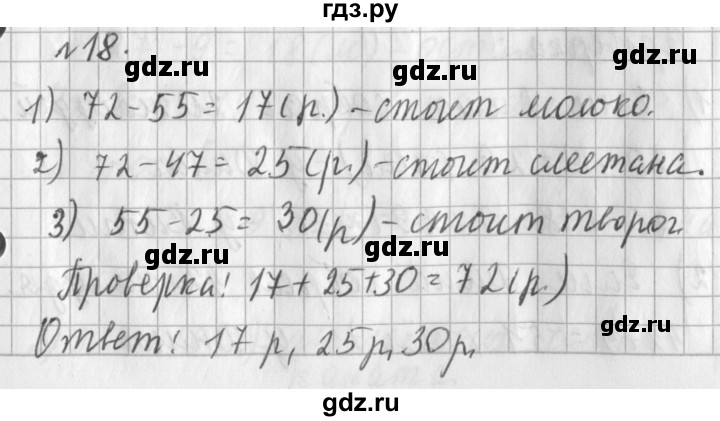 гдз.ру
№18.
gdz.ru
gdz.ru
gdz.ru
1) 72-55=17(р.)-стоит молоко.
2) 72-47=25(р.)-стоит сметана.
3) 55-25=30(р)-стоит творог.
gdz.ru
gdz.ru
Проверка! 17+25+30=72(р.)
gdz.ru
gdz.ru
Ответ! 17 р, 25р, 30р,
gdz.ru
gdz.ru